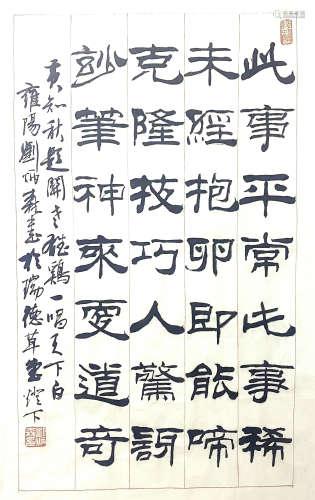 此事平常此事稀
未經抱卵即能啼
克隆技巧人驚訝
妙筆神來更道奇
黃知秋題關老雄鷄一唱天下白
雍陽劉炳森書於瑞德草堂燈下